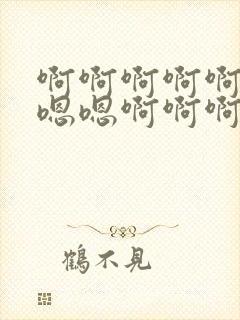 啊啊啊啊啊
嗯嗯啊啊啊
鶴不見